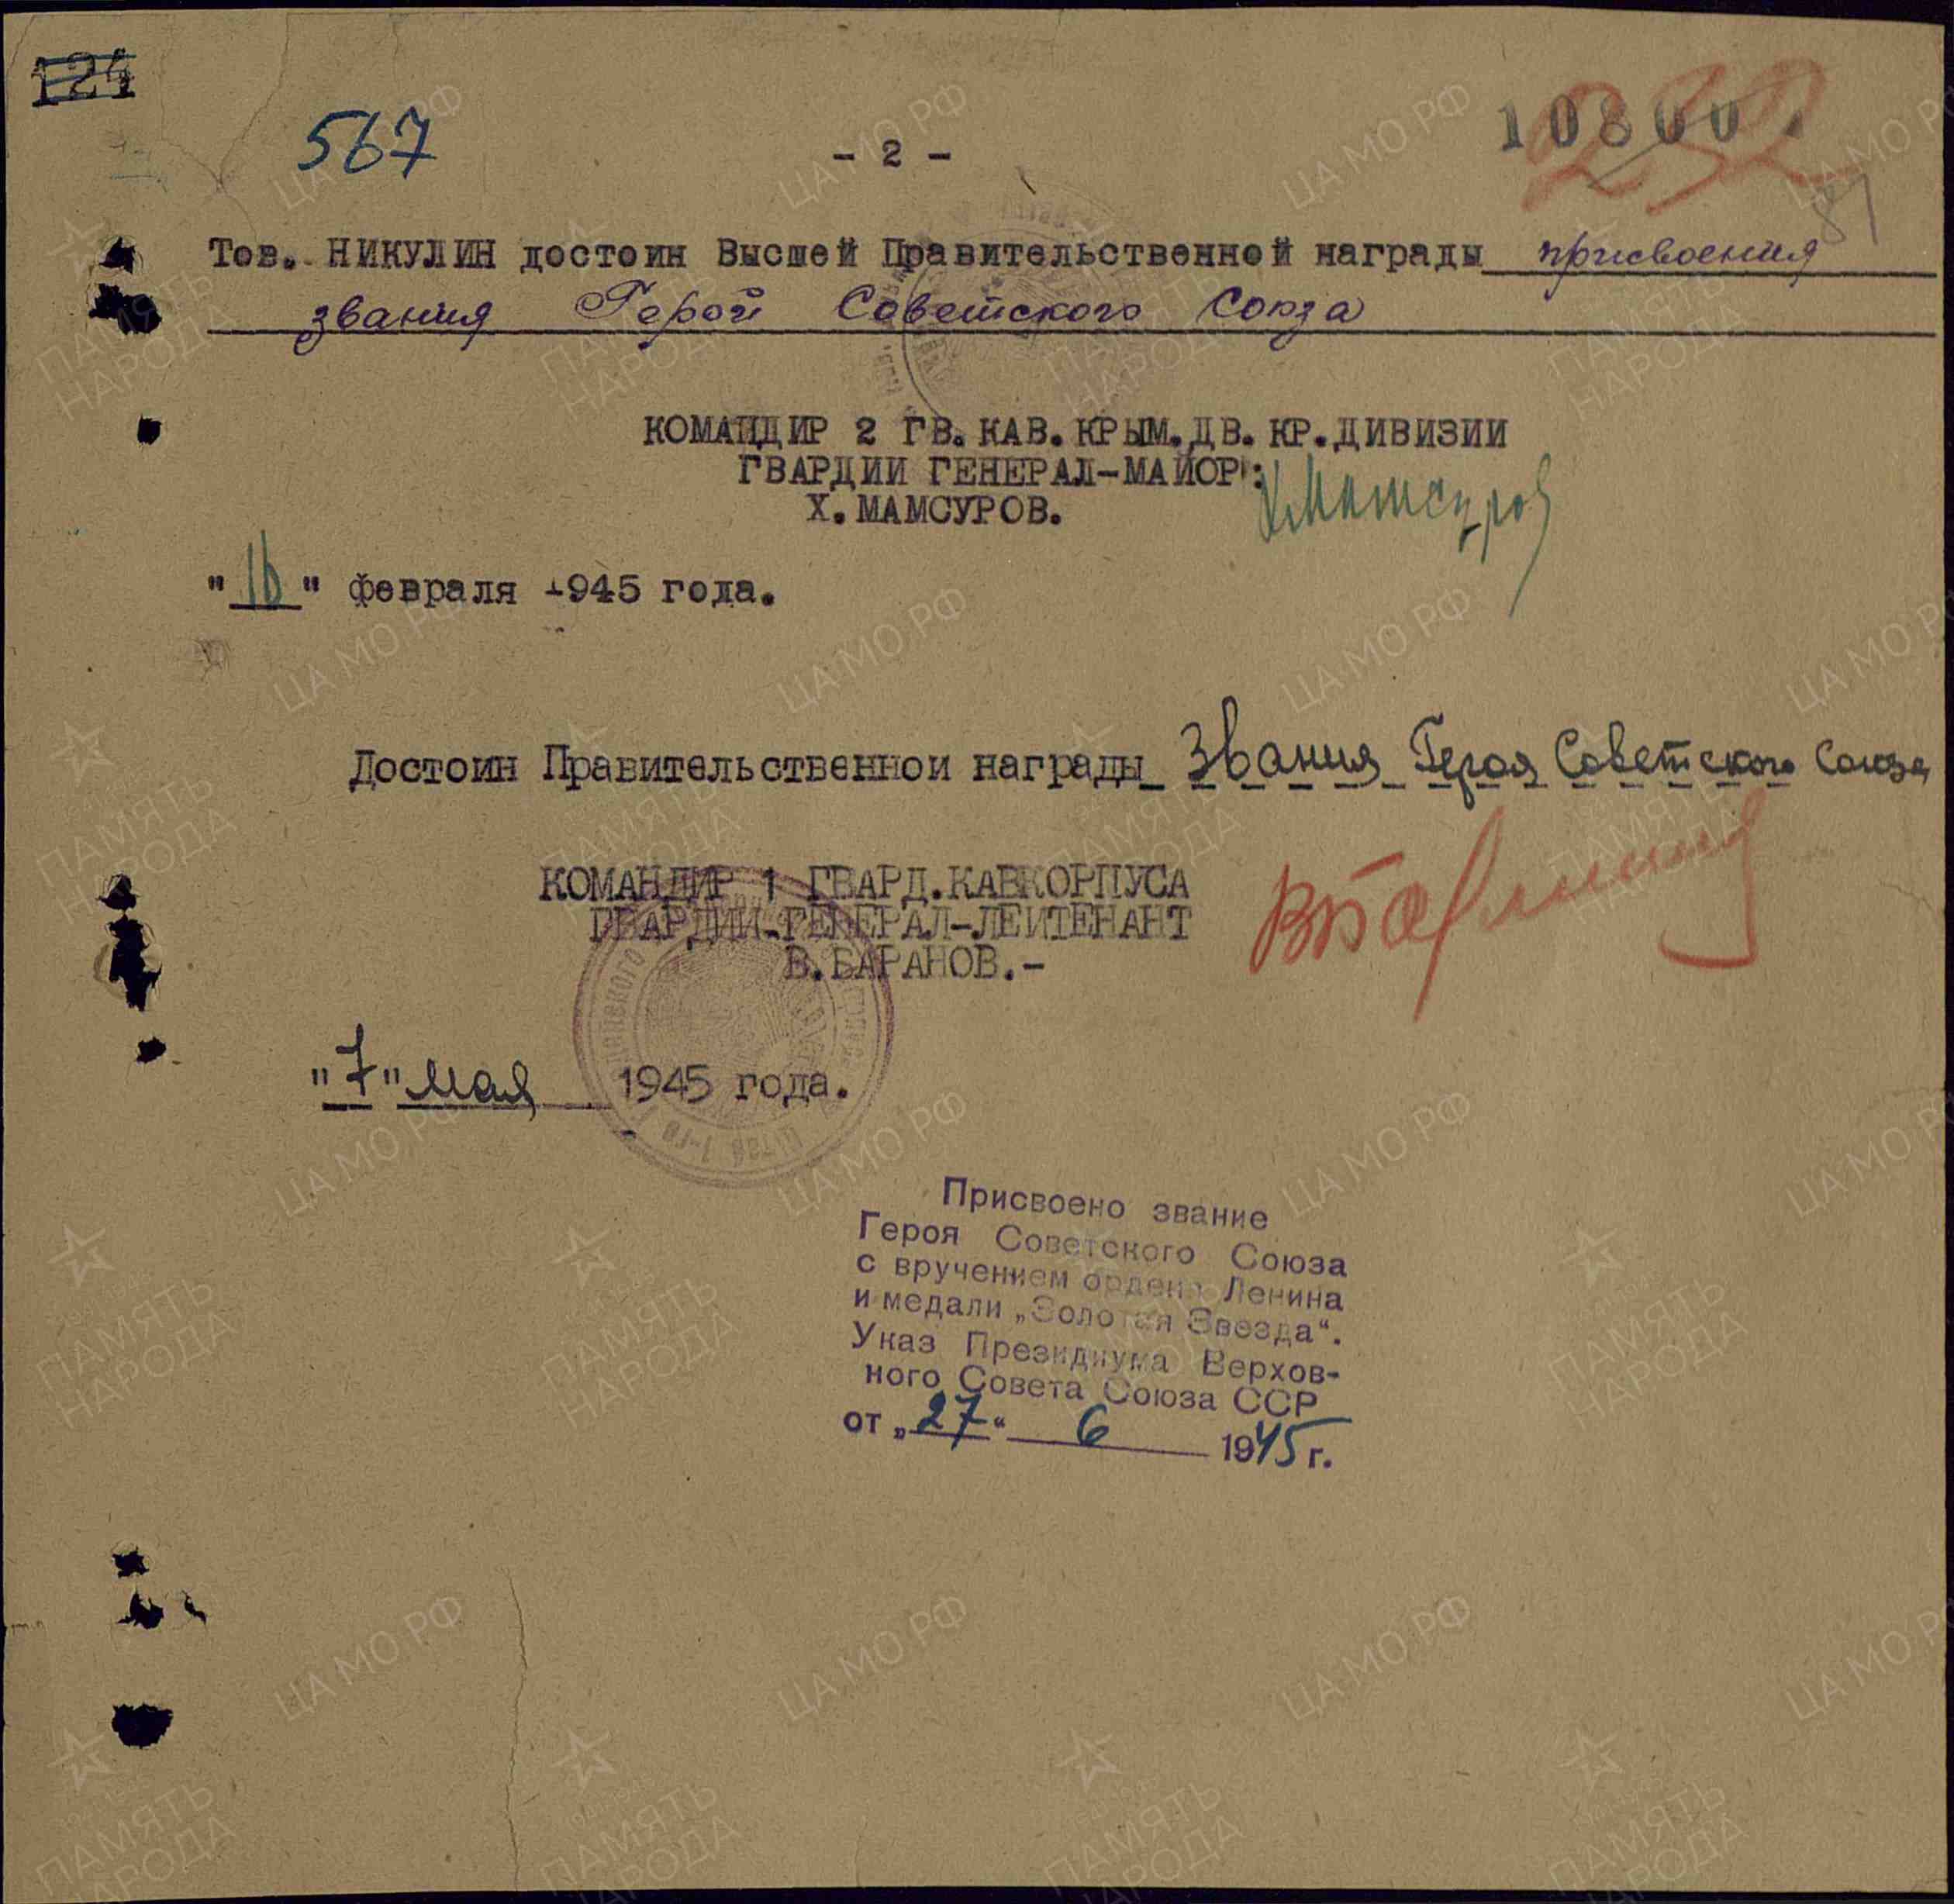 124
567
- 2 -
10800
232
81
Тов. НИКУЛИН достоин Высшей Правительственной награды присвоения
звания Герой Советского Союза
КОМАНДИР 2 ГВ. КАВ. КРЫМ. ДВ. КР. ДИВИЗИИ
ГВАРДИИ ГЕНЕРАЛ-МАЙОР:
Х. МАМСУРОВ.
"16" февраля 1945 года.
Достоин Правительственной награды Звания Героя Советского Союза
КОМАНДИР 1 ГВАРД. КАВКОРПУСА
ГВАРДИИ-ГЕНЕРАЛ-ЛЕЙТЕНАНТ
В. БАРАНОВ.-
"7" мая 1945 года.
Присвоено звание
Героя Советского Союза
с вручением ордена Ленина
и медали „Золотая Звезда“.
Указ Президиума Верхов-
ного Совета Союза ССР
от „27“ 6 1945 г.
ЦА МО РФ
ПАМЯТЬ
НАРОДА